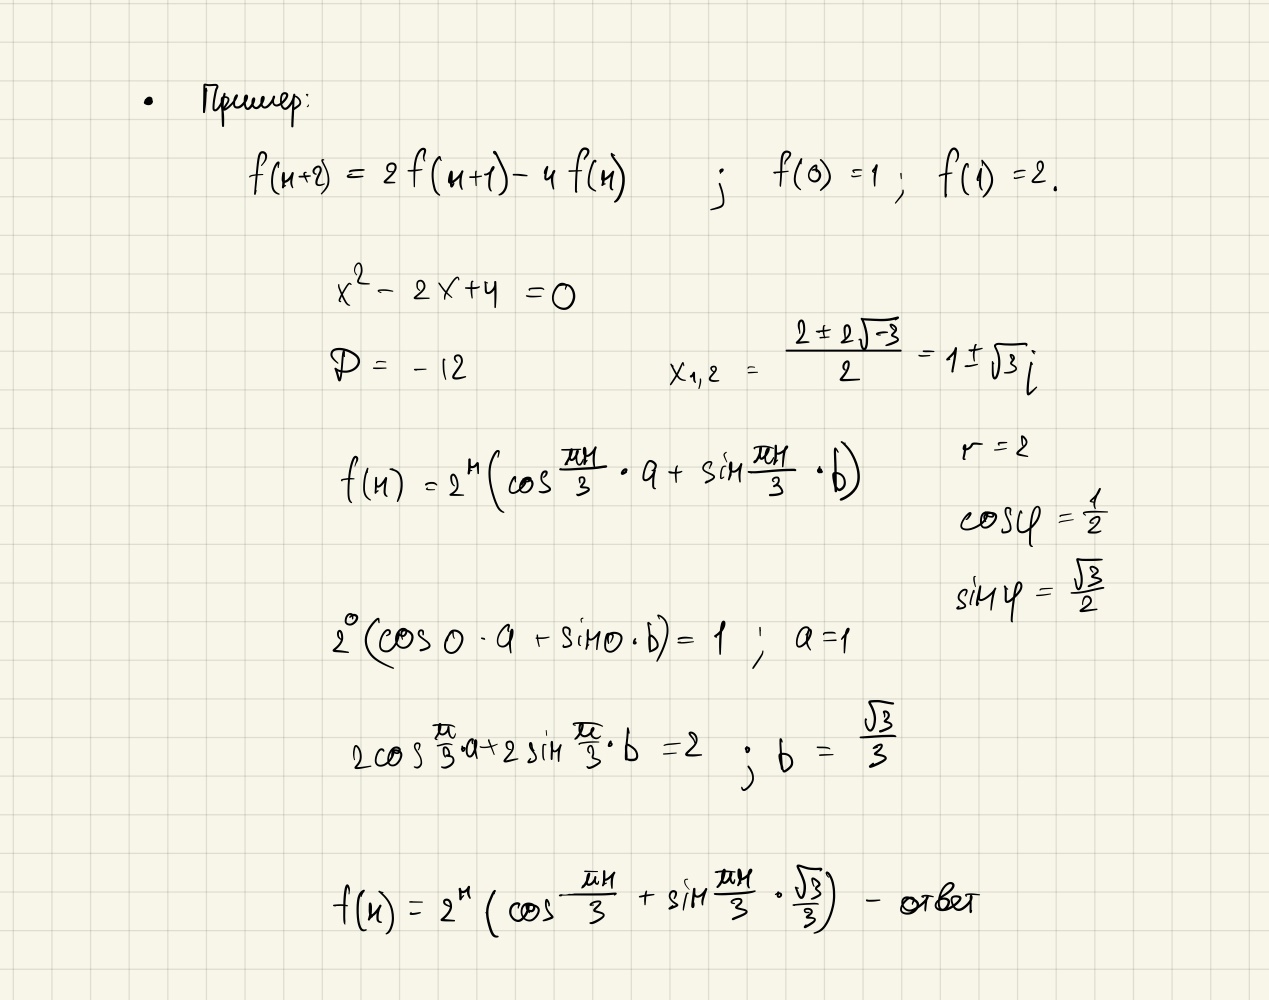 • Пример:
f(n+2) = 2f(n+1) - 4f(n) ; f(0) = 1 ; f(1) = 2.
x² - 2x + 4 = 0
D = -12 x₁,₂ = (2 ± 2√-3)/2 = 1 ± √3 i
r = 2
f(n) = 2ⁿ (cos πn/3 · a + sin πn/3 · b)
cosφ = 1/2
sinφ = √3/2
2⁰ (cos 0 · a + sin 0 · b) = 1 ; a = 1
2cos π/3 · a + 2 sin π/3 · b = 2 ; b = √3/3
f(n) = 2ⁿ (cos πn/3 + sin πn/3 · √3/3) - ответ